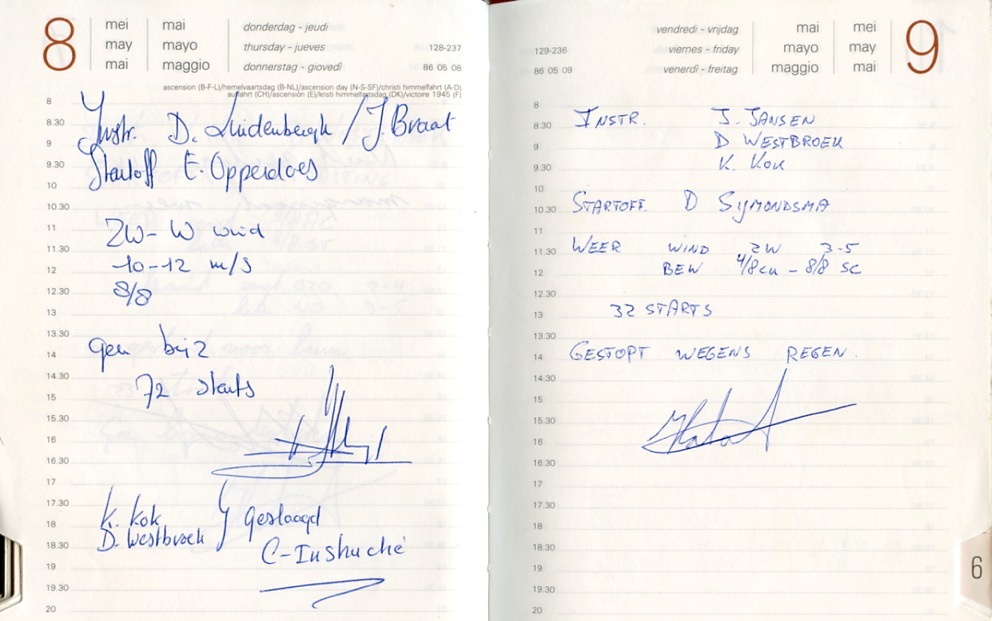 8
mei mai
may mayo
mai maggio
donderdag - jeudi
thursday - jueves 128-237
donnerstag - giovedì 86 05 08
ascension (B-F-L)/hemelvaartsdag (B-NL)/ascension day (N-S-SF)/christi himmelfahrt (A-D)
auffahrt (CH)/ascensión (E)/kristi himmelfartsdag (DK)/victoire 1945 (F)
8
8.30 Instr. D. Luidenbergh / J. Braat
9
9.30 Startoff E. Opperdoes
10
10.30
11 ZW - W wind
11.30
12 10-12 m/s
12.30 8/8
13
13.30
14 gen bij 2
14.30
15 72 starts
15.30
16
16.30
17
17.30 K. Kok } geslaagd
18 D. Westbroek
18.30 C-Instructie
19
19.30
20
vendredi - vrijdag mai mei
129-236 viernes - friday mayo may
86 05 09 venerdì - freitag maggio mai
9
8
8.30 INSTR. J. JANSEN
9 D WESTBROEK
9.30 K. KOK
10
10.30 STARTOFF. D SYMONDSMA
11
11.30 WEER WIND ZW 3-5
12 BEW 4/8 cu - 8/8 SC
12.30
13 32 STARTS
13.30
14 GESTOPT WEGENS REGEN.
14.30
15
15.30
16
16.30
17
17.30
18
18.30
19
19.30
20
6